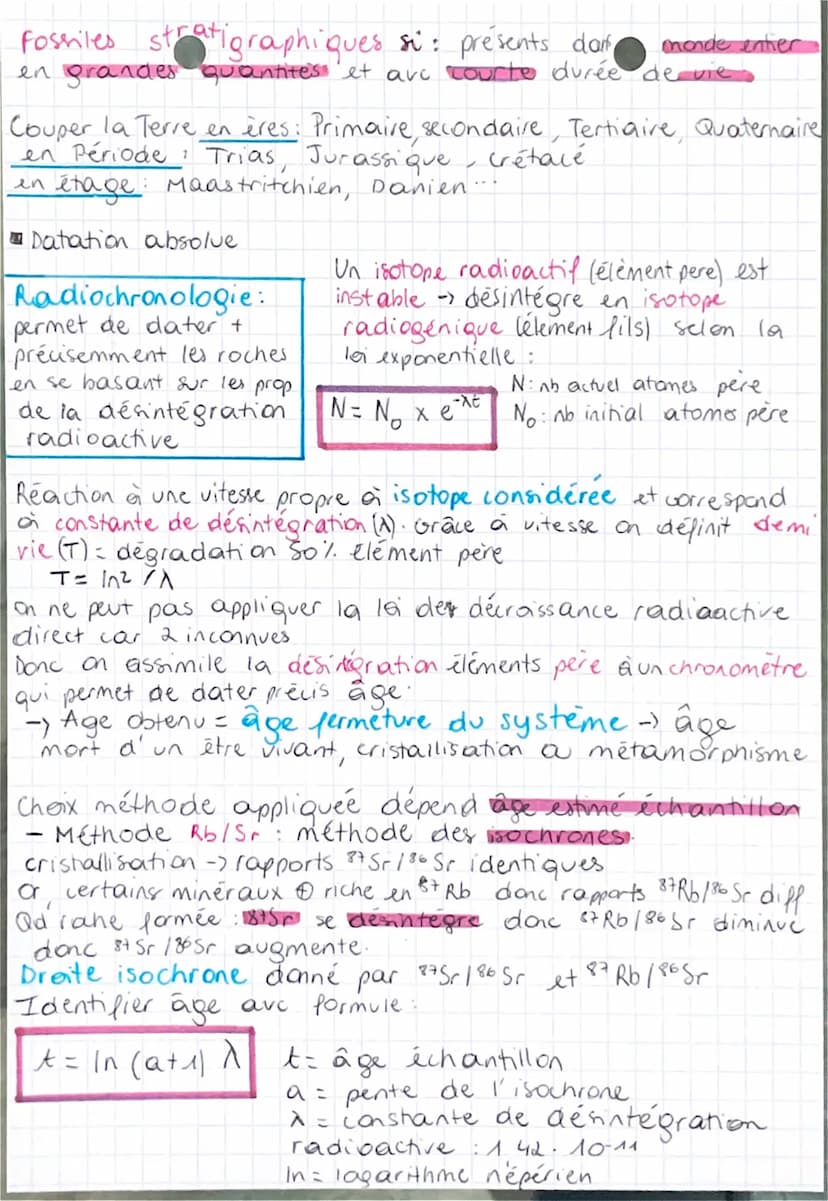 Fossiles stratigraphiques si : présents dans monde entier
en grandes quantités et avc courte durée de vie
Couper la Terre en ères : Primaire, secondaire, Tertiaire, Quaternaire
en Période : Trias, Jurassique, crétacé
en étage : Maastritchien, Danien...
Datation absolue
Radiochronologie :
permet de dater +
précisemment les roches
en se basant sur les prop
de la désintégration
radioactive
Un isotope radioactif (élément pere) est
instable -> désintégre en isotope
radiogénique (élement fils) selon la
loi exponentielle :
N = N₀ x e^-λt
N : nb actuel atomes père
N₀ : nb initial atomes père
Réaction à une vitesse propre à isotope considérée et correspond
à constante de désintégration (λ). Grâce à vitesse on définit demi
vie (T) = dégradation 50% élément père
T = ln2 / λ
on ne peut pas appliquer la loi de décroissance radioactive
direct car 2 inconnues
Donc on assimile la désintégration éléments père à un chronomètre
qui permet de dater précis âge.
-> Age obtenu = âge fermeture du système -> âge
mort d'un être vivant, cristallisation a métamorphisme
Choix méthode appliqueé dépend âge estimé échantillon
- Méthode Rb/Sr : méthode des isochrones.
cristallisation -> rapports ⁸⁷Sr/⁸⁶Sr identiques
Or, certains minéraux ⊕ riche en ⁸⁷Rb donc rapports ⁸⁷Rb/⁸⁶Sr diff
Qd formée : 87Sr se désintègre donc ⁸⁷Rb/⁸⁶Sr diminue
donc ⁸⁷Sr/⁸⁶Sr augmente.
Droite isochrone donné par ⁸⁷Sr/⁸⁶Sr et ⁸⁷Rb/⁸⁶Sr
Identifier âge avc formule :
t = ln (a+1) λ
t = âge échantillon
a = pente de l'isochrone
λ = constante de désintégration
radioactive : 1 42 . 10-11
ln = logarithme népérien